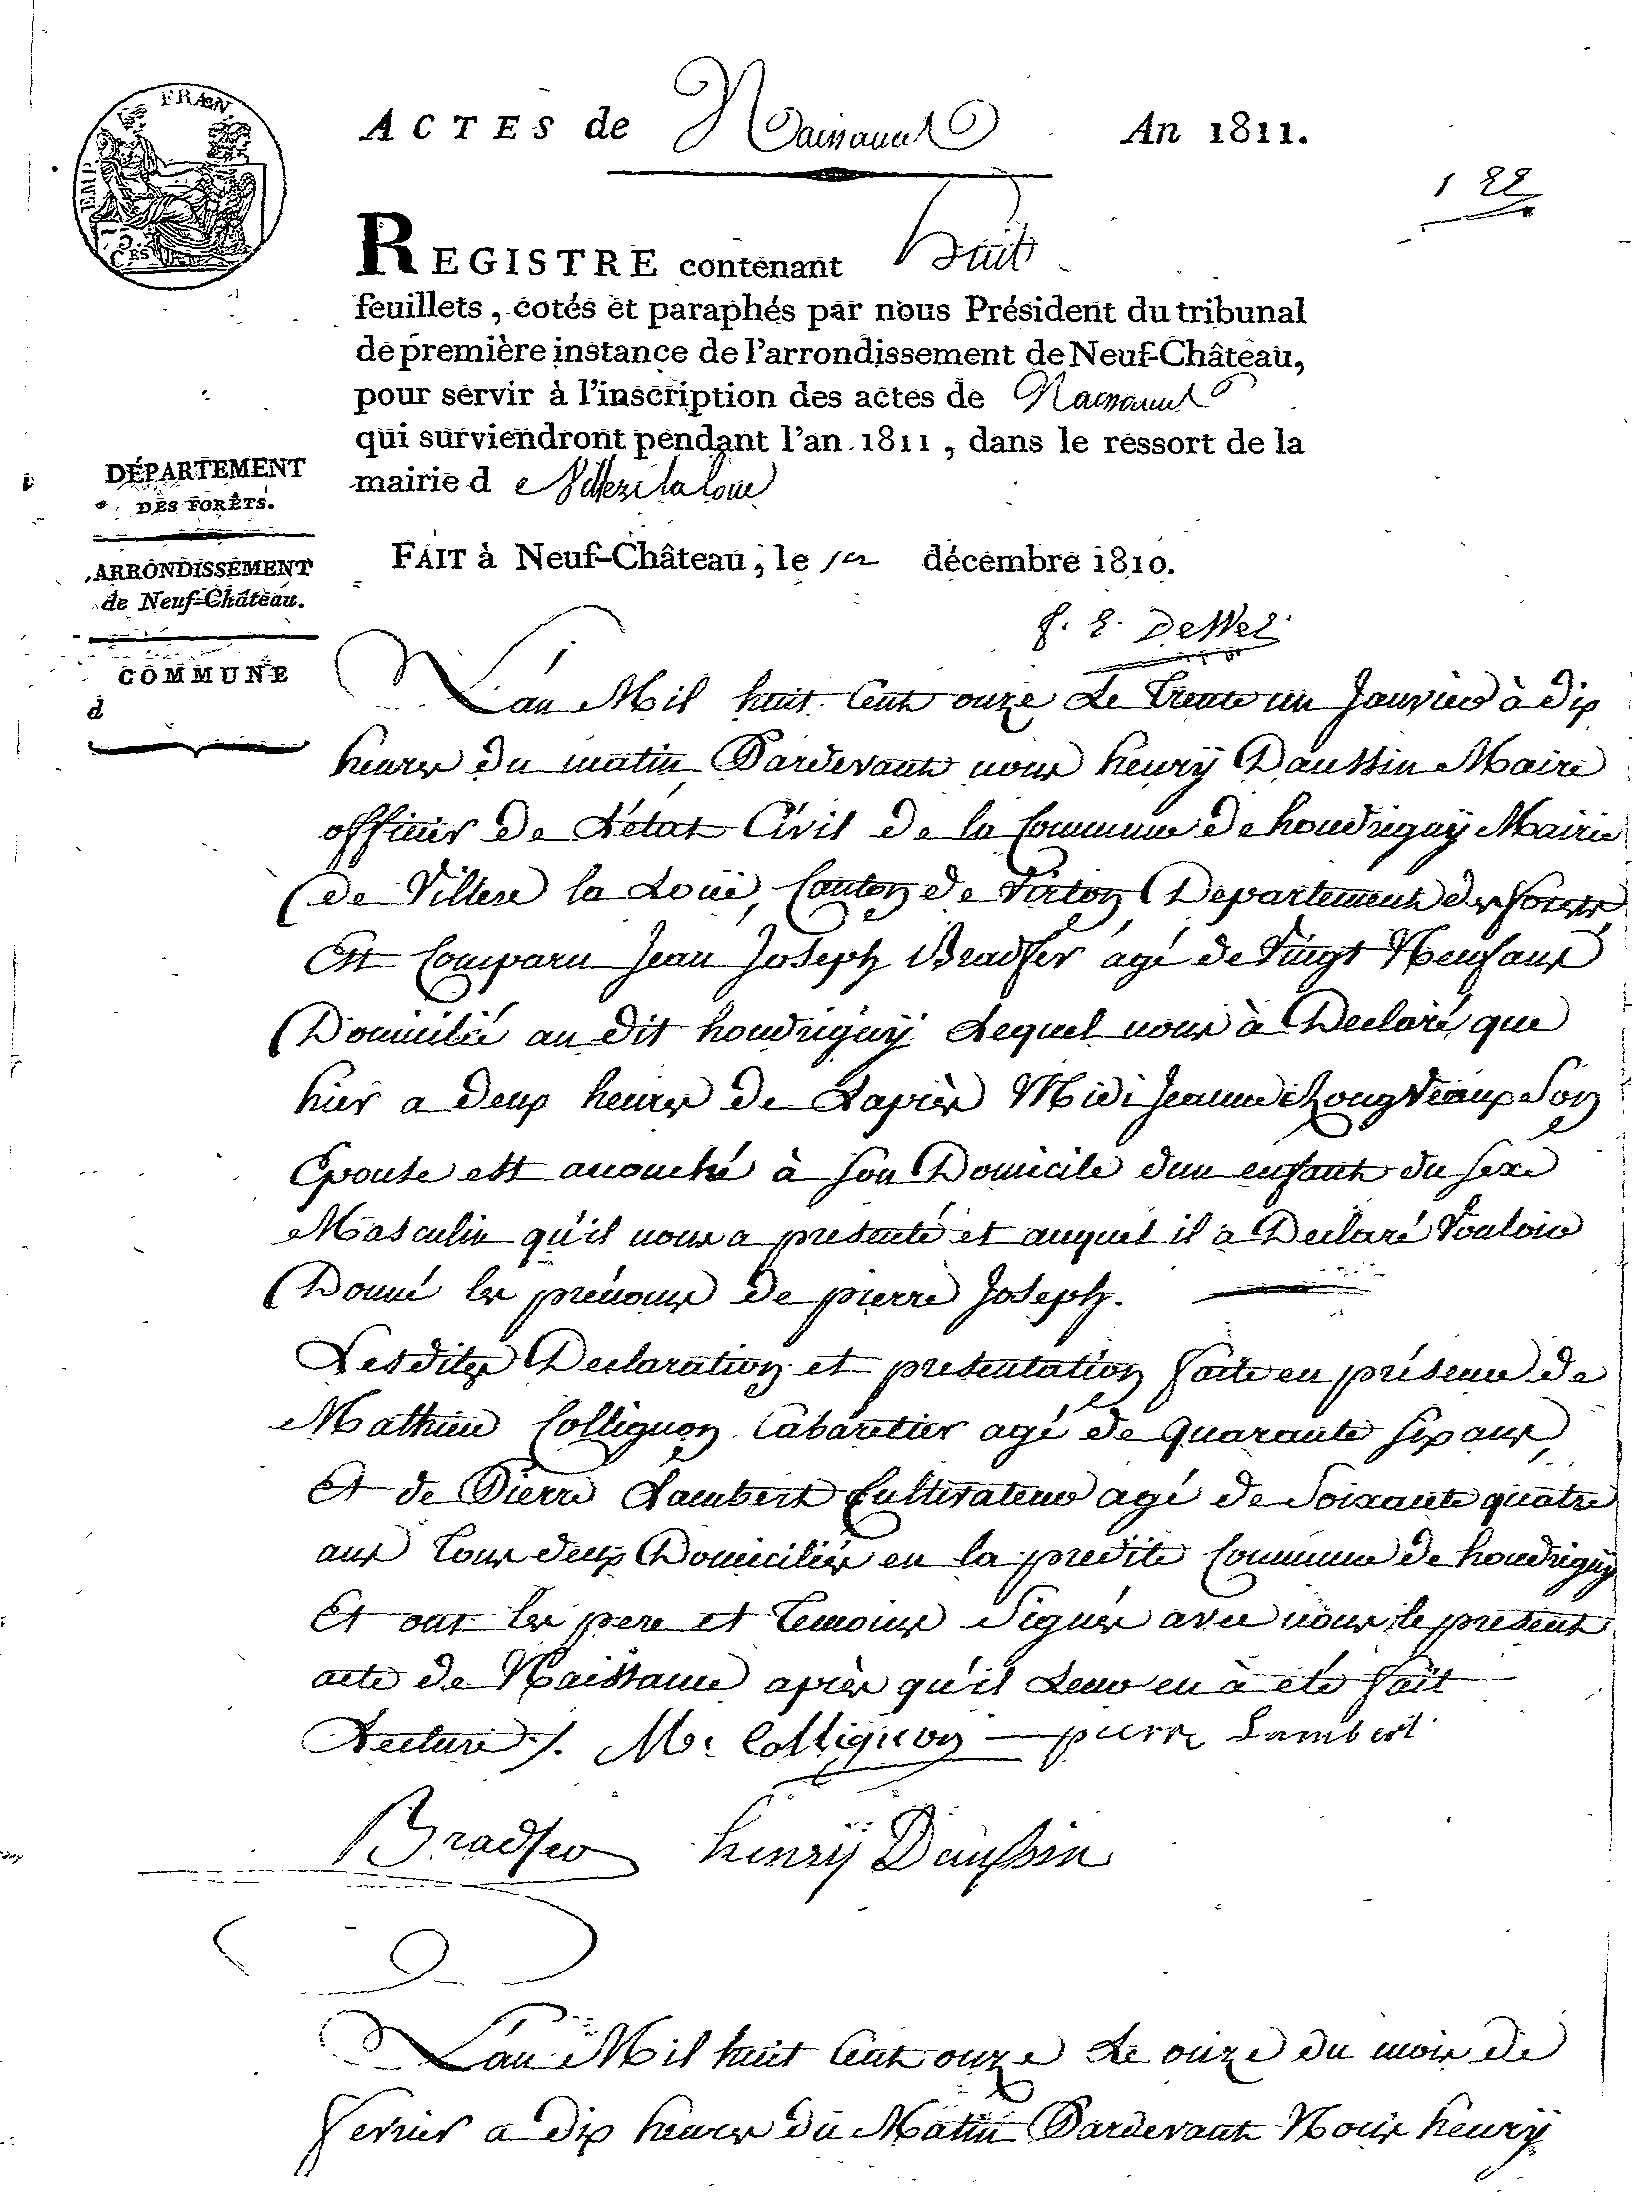 EMP. FRAN.
5 Ces
ACTES de Naissance An 1811.
1 22
REGISTRE contenant huit
feuillets, cotés et paraphés par nous Président du tribunal
de première instance de l'arrondissement de Neuf-Château,
pour servir à l'inscription des actes de Naissance
qui surviendront pendant l'an 1811, dans le ressort de la
mairie de Villers la loue
FAIT à Neuf-Château, le 1er décembre 1810.
DÉPARTEMENT
DES FORÊTS.
ARRONDISSEMENT
de Neuf-Château.
COMMUNE
d
L'an Mil huit Cent onze Le Trente un Janvier à dix
heures du matin Pardevant nous henrÿ Daussin Maire
officier de L'état Civil de la Commune de houdrignÿ Mairie
de Villere la Loüe, Canton de Virton Departement des forets
Est Comparu Jean Joseph Bradfer agé de Vingt Neuf ans
Domicilié au dit houdrignÿ Lequel nous à Declaré que
hier a deux heures de Laprès Midi Jeanne Longveaux Son
Epouse est accouché à son Domicile d'un enfant du sexe
Masculin qu'il nous a presenté et auquel il a Declaré Vouloir
Donné les prénoms de pierre Joseph.
Lesdites Declaration et presentation faite en présence de
Mathieu Collignon Cabaretier agé de quarante six ans,
Et de Pierre Lambert Cultivateur agé de Soixante quatre
ans Tous deux Domiciliés en la predite Commune de houdrignÿ
Et ont les pere et Temoins Signés avec nous le present
acte de Naissance après qu'il Leur en à été fait
Lecture ./. M. Collignon pierre Lambert
Bradfer henrÿ Daussin
L'an Mil huit Cent onze Le onze du mois de
fevrier a dix heures du Matin Pardevant Nous henrÿ